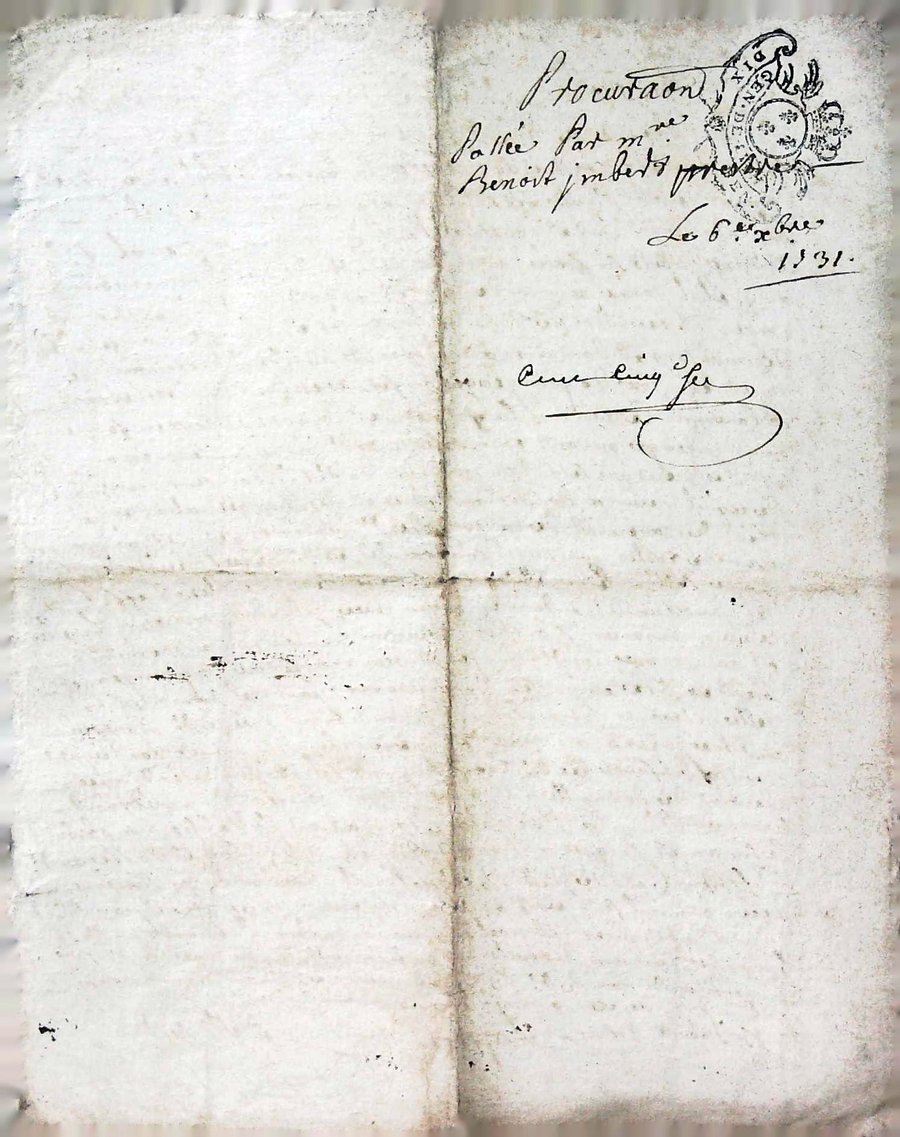 Procuraon
Passée Par mre
Benoit jmbert prestre
Le 6e xbre
1731.
Cent Cinq
GEN · DE
DIX